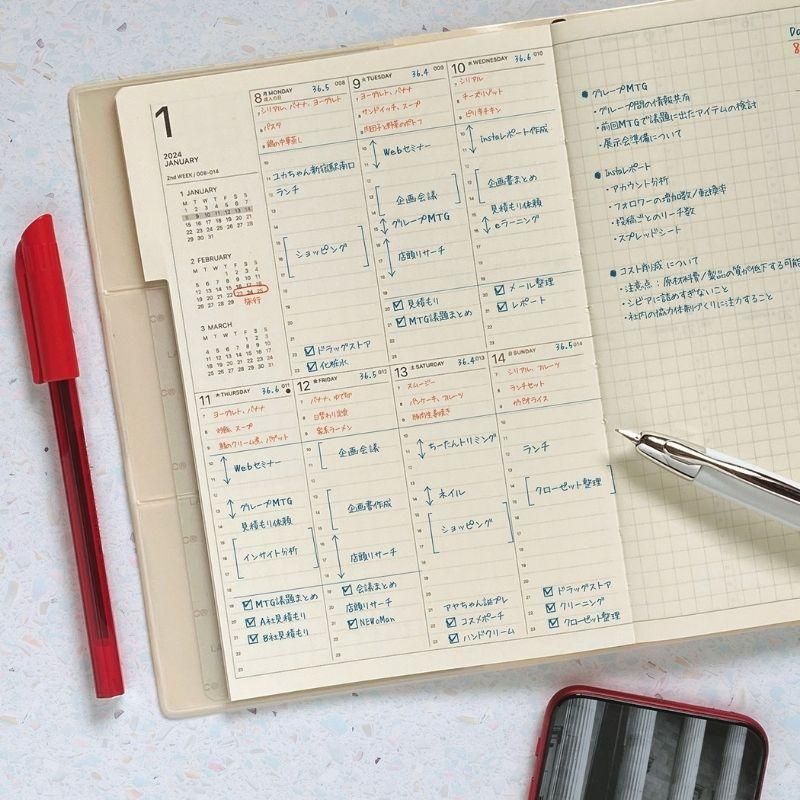 1
2024
JANUARY
2nd WEEK / 008-014
1 JANUARY
M T W T F S S
1 2 3 4 5 6 7
8 9 10 11 12 13 14
15 16 17 18 19 20 21
22 23 24 25 26 27 28
29 30 31
2 FEBRUARY
M T W T F S S
1 2 3 4
5 6 7 8 9 10 11
12 13 14 15 16 17 18
19 20 21 22 23 24 25
26 27 28 29
旅行
3 MARCH
M T W T F S S
1 2 3
4 5 6 7 8 9 10
11 12 13 14 15 16 17
18 19 20 21 22 23 24
25 26 27 28 29 30 31
8 月 MONDAY 36.5 008
成人の日
シリアル、バナナ、ヨーグルト
パスタ
鶏の中華蒸し
ユカちゃん新宿駅南口
ランチ
ショッピング
☑ ドラッグストア
☑ 化粧水
9 火 TUESDAY 36.4 009
ヨーグルト、バナナ
サンドイッチ、スープ
肉団子と野菜のポトフ
Webセミナー
企画会議
グループMTG
店頭リサーチ
☑ 見積もり
☑ MTG議題まとめ
10 水 WEDNESDAY 36.6 010
シリアル
チーズリゾット
ピリ辛チキン
instaレポート作成
企画書まとめ
見積もり依頼
eラーニング
☑ メール整理
☑ レポート
11 木 THURSDAY 36.6 011
ヨーグルト、バナナ
炒飯、スープ
鮭のクリーム煮、バゲット
Webセミナー
グループMTG
見積もり依頼
インサイト分析
☑ MTG議題まとめ
☑ A社見積もり
☑ B社見積もり
12 金 FRIDAY 36.5 012
バナナ、ゆで卵
日替わり定食
家系ラーメン
企画会議
企画書作成
店頭リサーチ
☑ 会議まとめ
店頭リサーチ
☑ NEWoMan
13 土 SATURDAY 36.4 013
スムージー
パンケーキ、フルーツ
豚肉生姜焼き
ちーたんトリミング
ネイル
ショッピング
アヤちゃん誕プレ
☑ コスメポーチ
☑ ハンドクリーム
14 日 SUNDAY 36.5 014
シリアル、フルーツ
ランチセット
ランチ
クローゼット整理
☑ ドラッグストア
☑ クリーニング
☑ クローゼット整理
● グループMTG
・グループ間の情報共有
・前回MTGで議題に出たアイテムの検討
・展示会準備について
● Instaレポート
・アカウント分析
・フォロワーの増加数/転換率
・投稿ごとのリーチ数
・スプレッドシート
● コスト削減について
・注意点：原材料費/製品の質が低下する可能
・シビアに詰めすぎないこと
・社内の協力体制づくりに注力すること